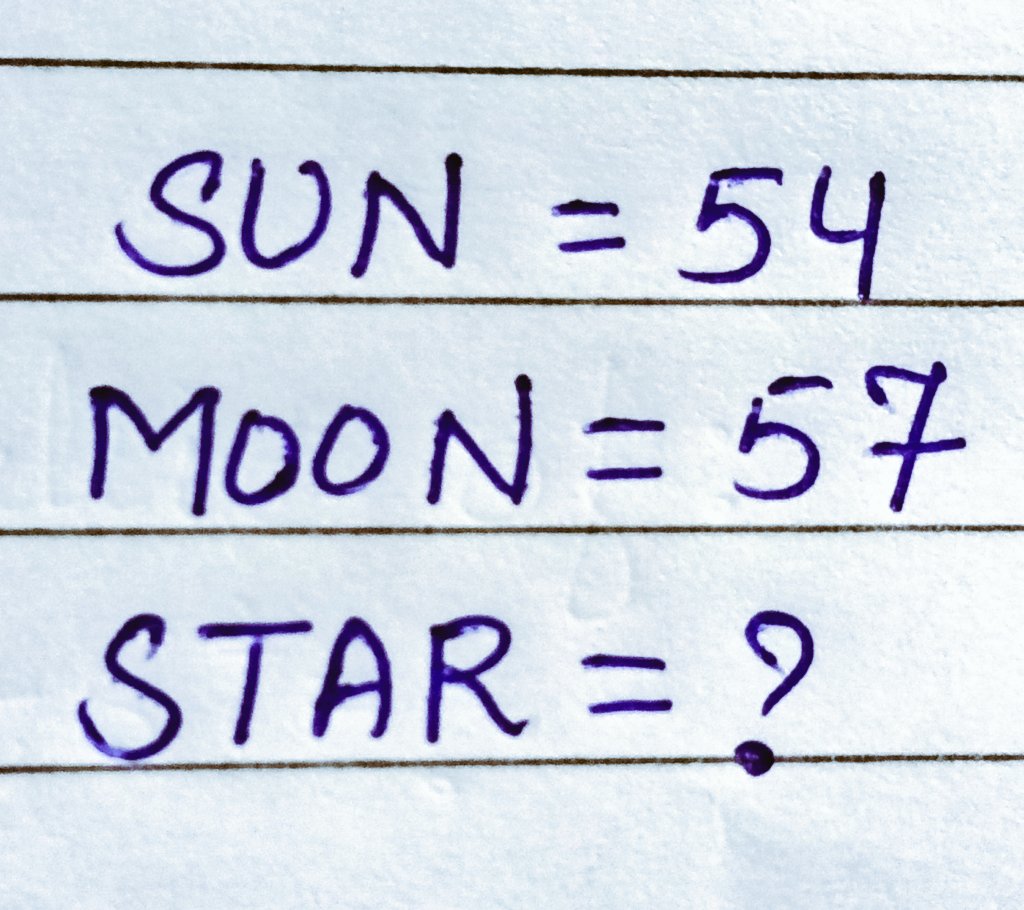 SUN = 54
MOON = 57
STAR = ?